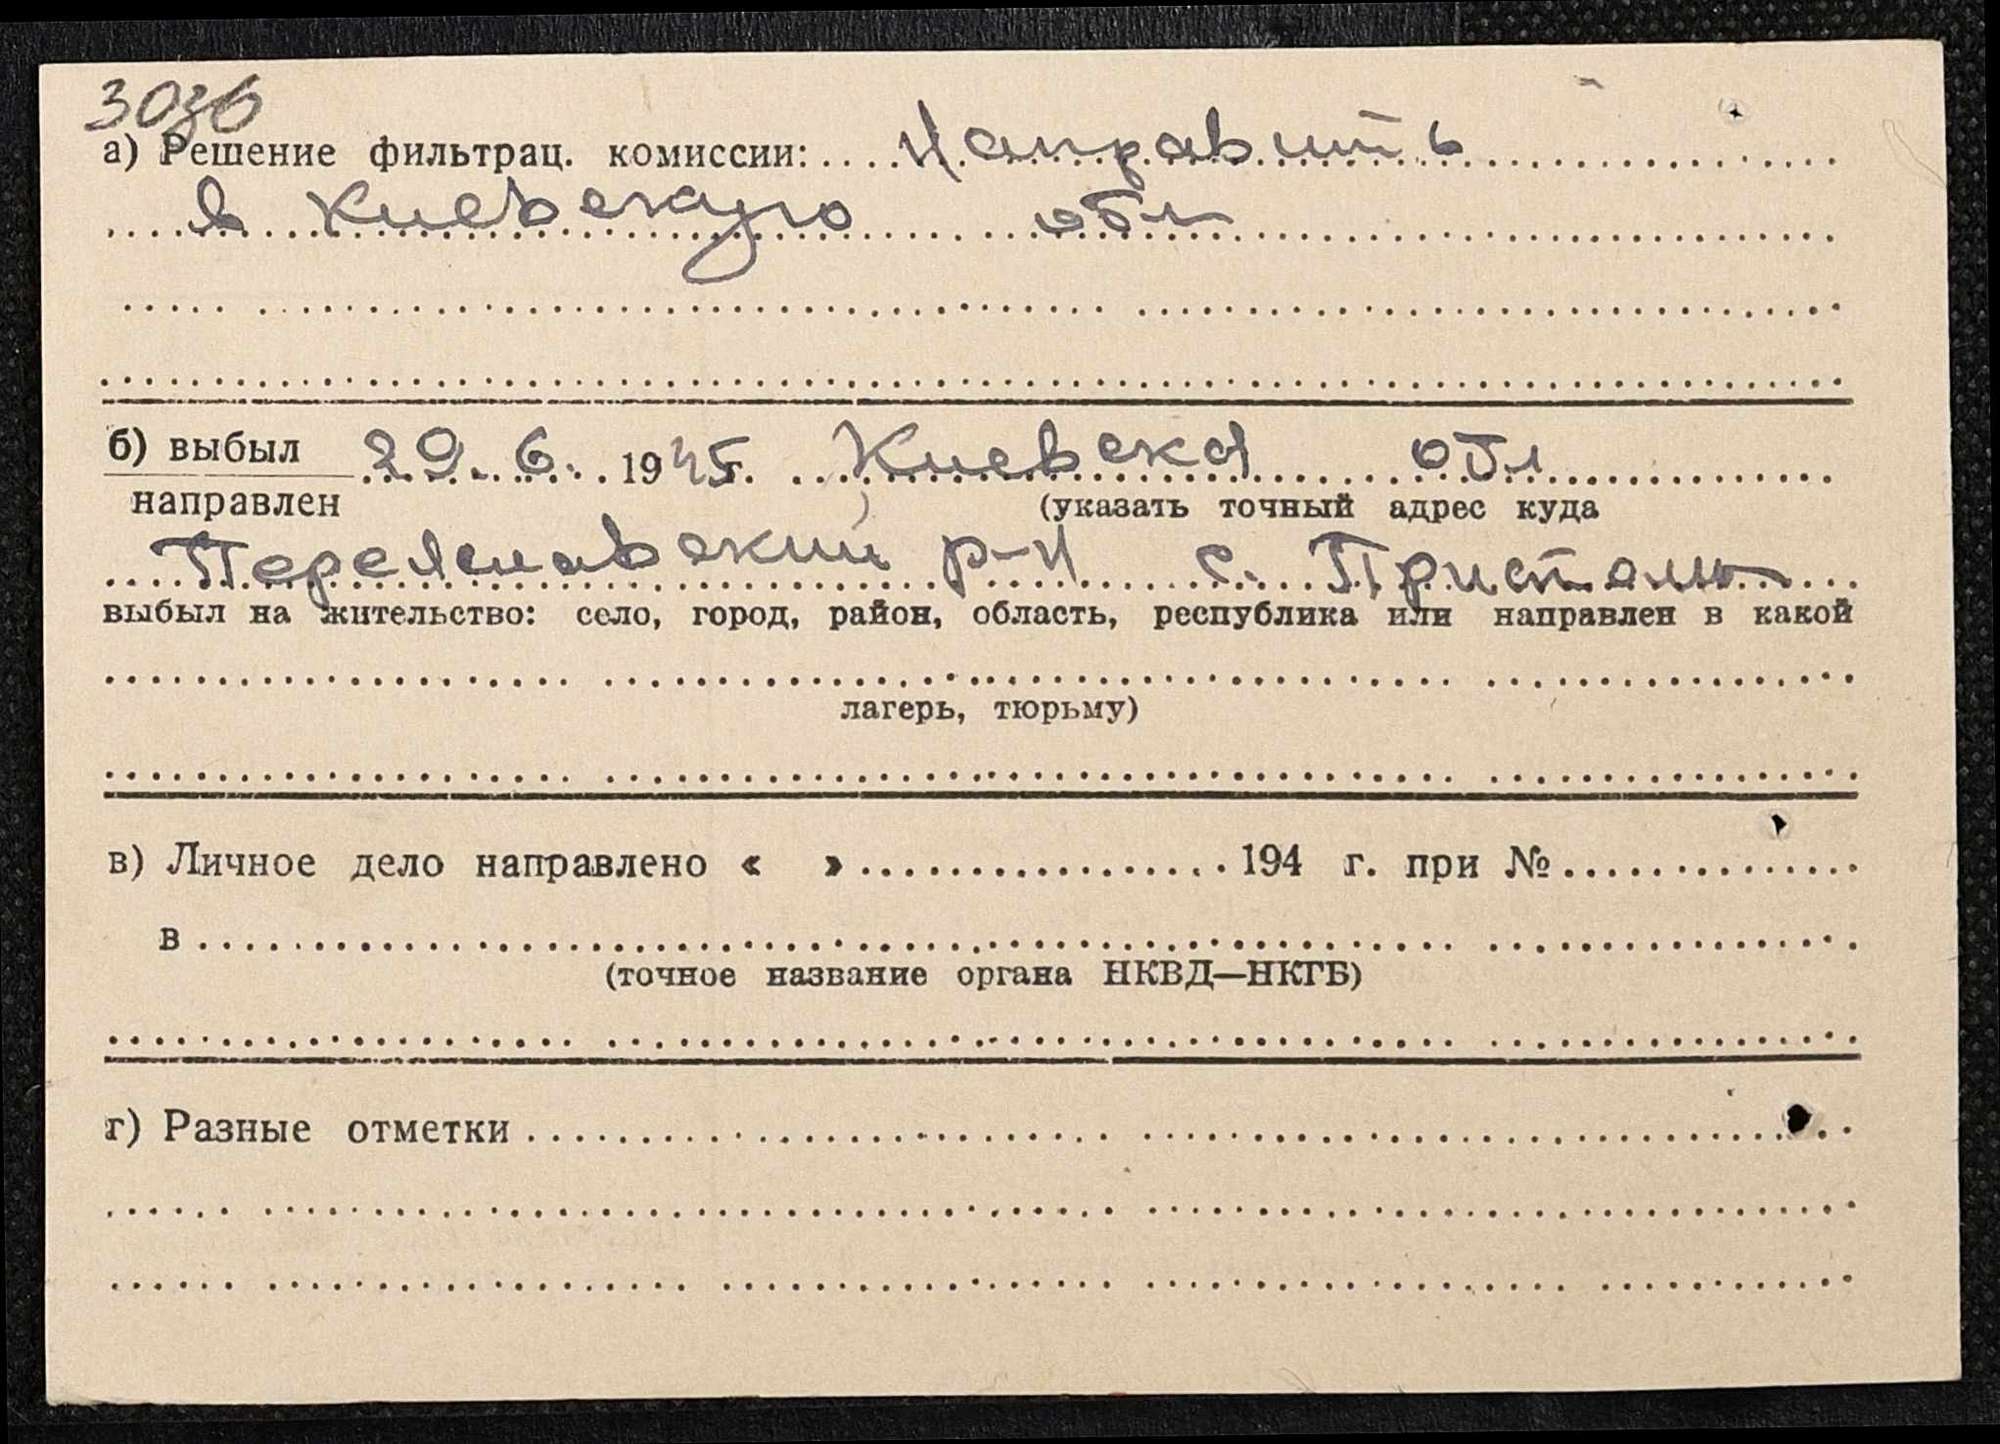 3036
а) Решение фильтрац. комиссии: Направить
в Киевскую обл
б) выбыл 29. 6. 1945 г. Киевска обл
направлен (указать точный адрес куда
Переяславский р-н с. Пристань
выбыл на жительство: село, город, район, область, республика или направлен в какой
лагерь, тюрьму)
в) Личное дело направлено « » 194 г. при №
в
(точное название органа НКВД—НКГБ)
г) Разные отметки